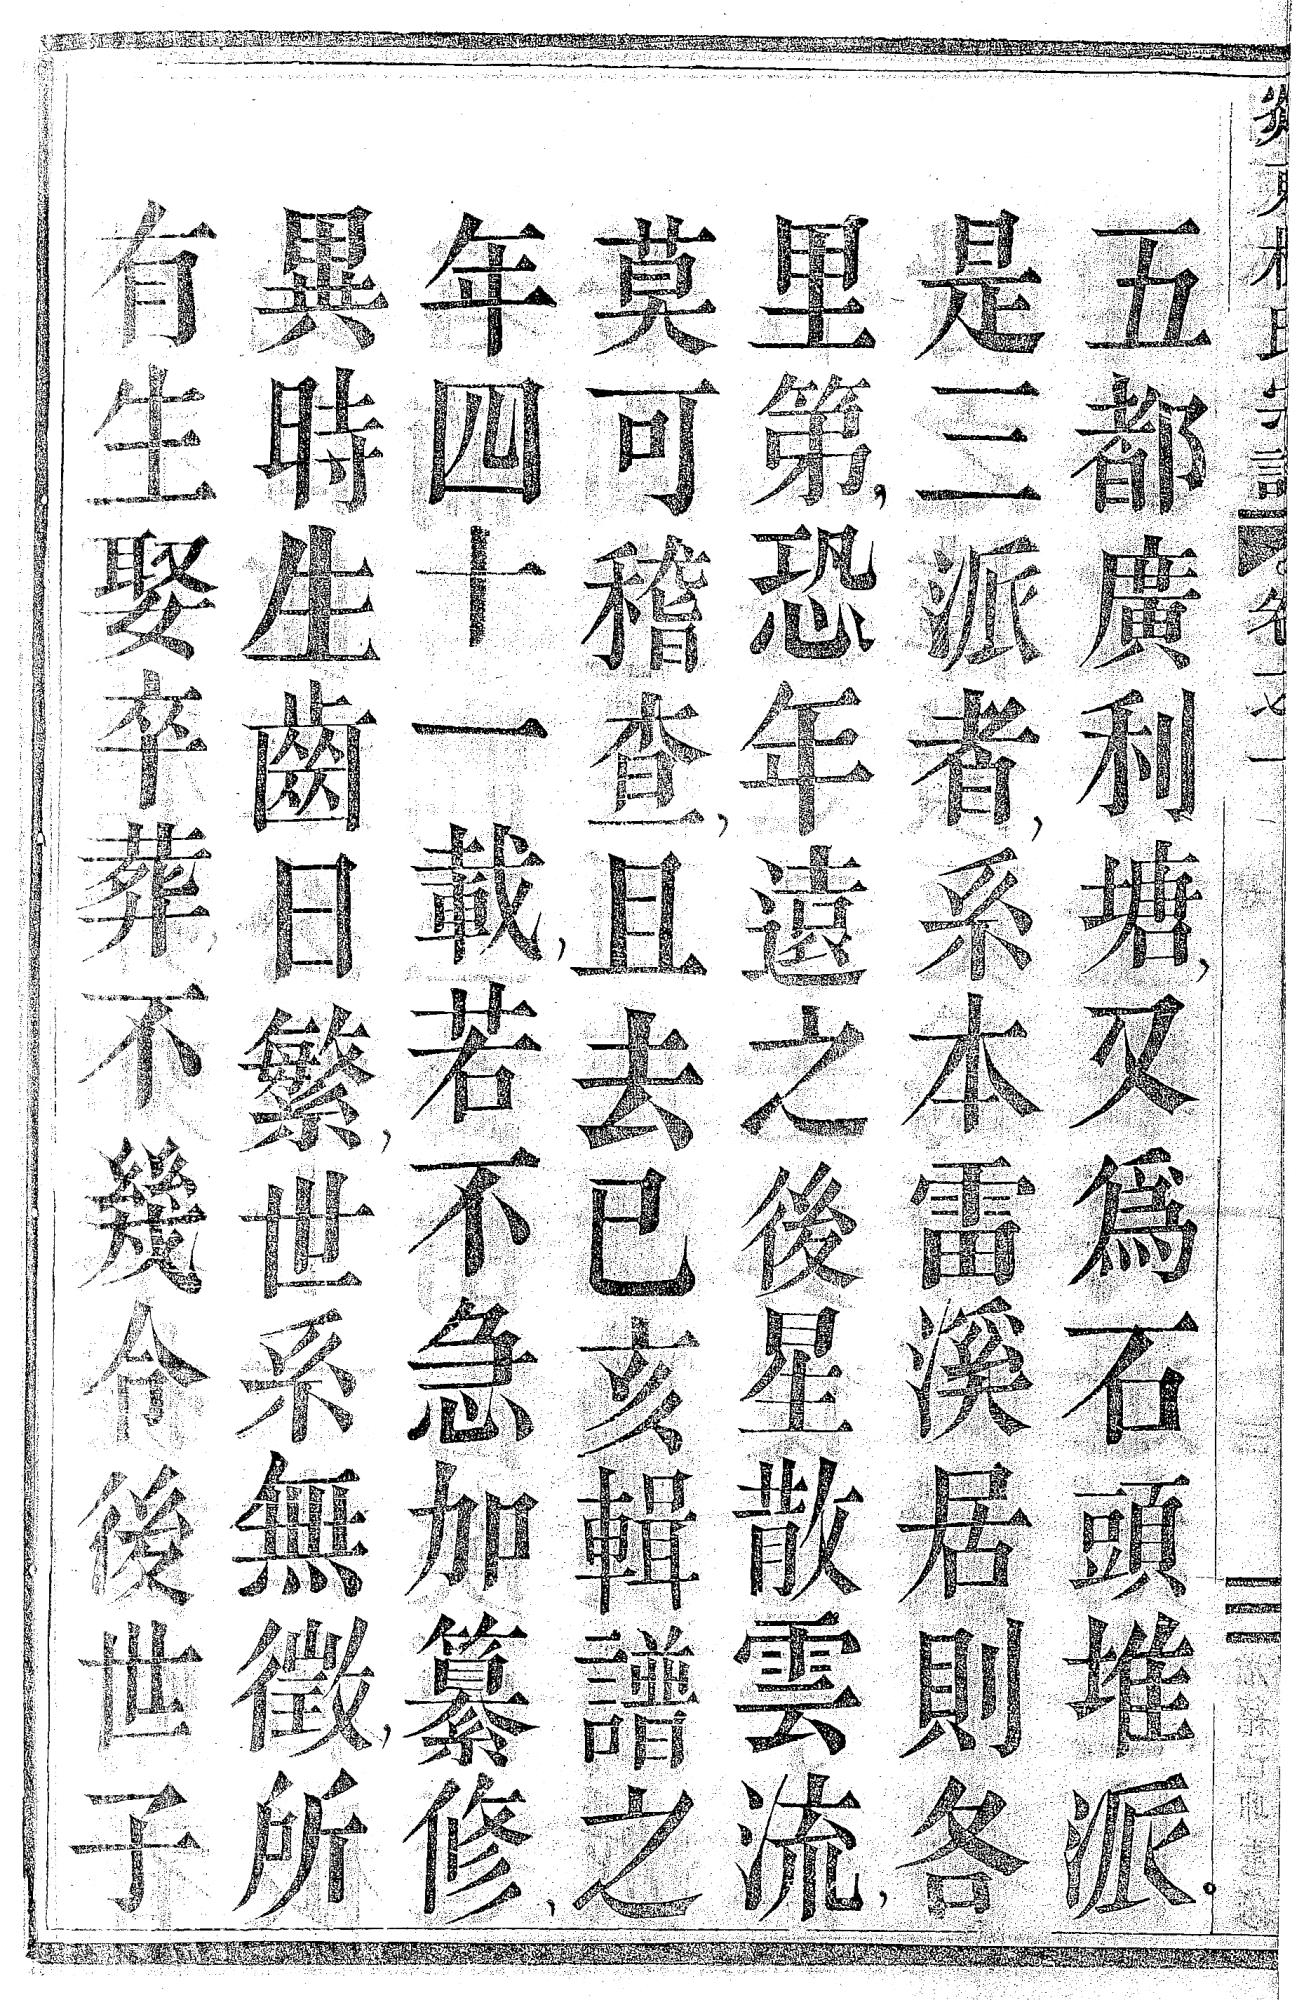 五都廣利塘，又爲石頭堆派。
是三派者，系本雷溪居則各
里第，恐年遠之後星散雲流，
莫可稽查，且去已亥輯譜之
年四十一載，若不急加纂修，
異時生齒日繁，世系無徵，所
有生娶卒葬，不幾令後世子